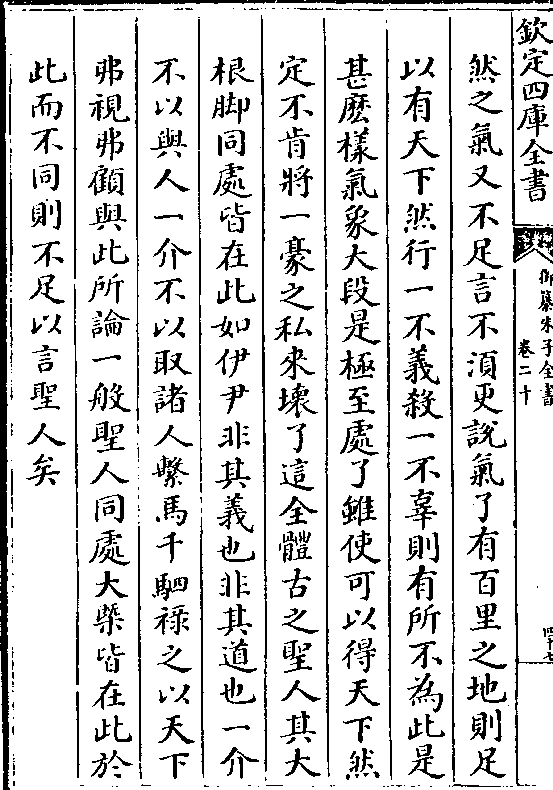 欽定四庫全書
御纂朱子全書
卷二十
然之氣又不足言不須更說氣了有百里之地則足
以有天下然行一不義殺一不辜則有所不為此是
甚麽樣氣象大段是極至處了雖使可以得天下然
定不肯將一豪之私來壞了這全體古之聖人其大
根脚同處皆在此如伊尹非其義也非其道也一介
不以與人一介不以取諸人繫馬千駟禄之以天下
弗視弗顧與此所論一般聖人同處大槩皆在此於
此而不同則不足以言聖人矣